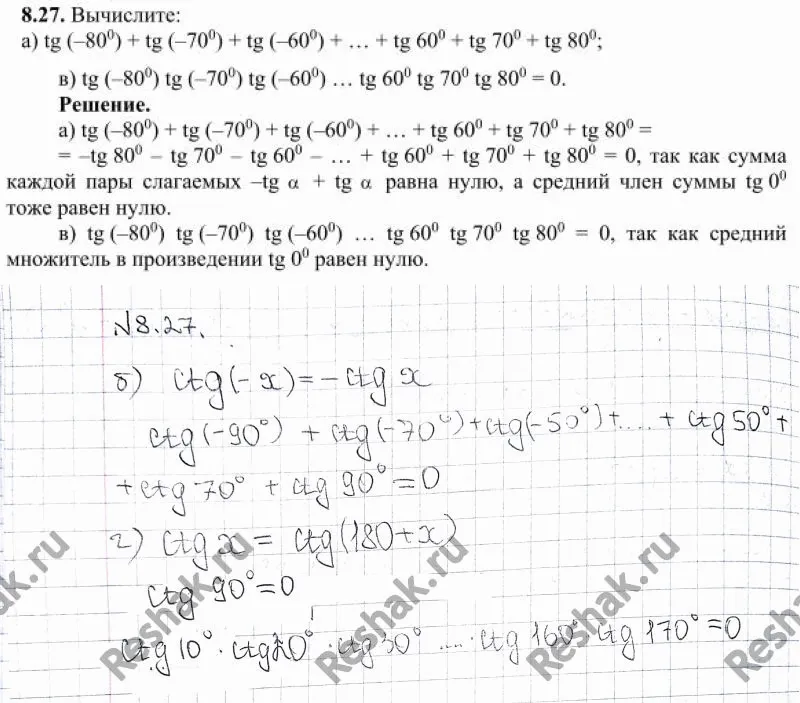 8.27. Вычислите:
а) tg (–80⁰) + tg (–70⁰) + tg (–60⁰) + … + tg 60⁰ + tg 70⁰ + tg 80⁰;
в) tg (–80⁰) tg (–70⁰) tg (–60⁰) … tg 60⁰ tg 70⁰ tg 80⁰ = 0.
Решение.
а) tg (–80⁰) + tg (–70⁰) + tg (–60⁰) + … + tg 60⁰ + tg 70⁰ + tg 80⁰ =
= –tg 80⁰ – tg 70⁰ – tg 60⁰ – … + tg 60⁰ + tg 70⁰ + tg 80⁰ = 0, так как сумма
каждой пары слагаемых –tg α + tg α равна нулю, а средний член суммы tg 0⁰
тоже равен нулю.
в) tg (–80⁰) tg (–70⁰) tg (–60⁰) … tg 60⁰ tg 70⁰ tg 80⁰ = 0, так как средний
множитель в произведении tg 0⁰ равен нулю.
№8.27.
б) ctg(-x)=-ctg x
ctg(-90°) + ctg(-70°)+ctg(-50°)+...+ctg50°+
+ctg 70° + ctg 90°=0
г) ctg x = ctg(180+x)
ctg 90°=0
ctg 10° · ctg20° · ctg30° .... · ctg 160° · ctg 170°=0
Reshak.ru
Reshak.ru
Reshak.ru
Reshak.ru